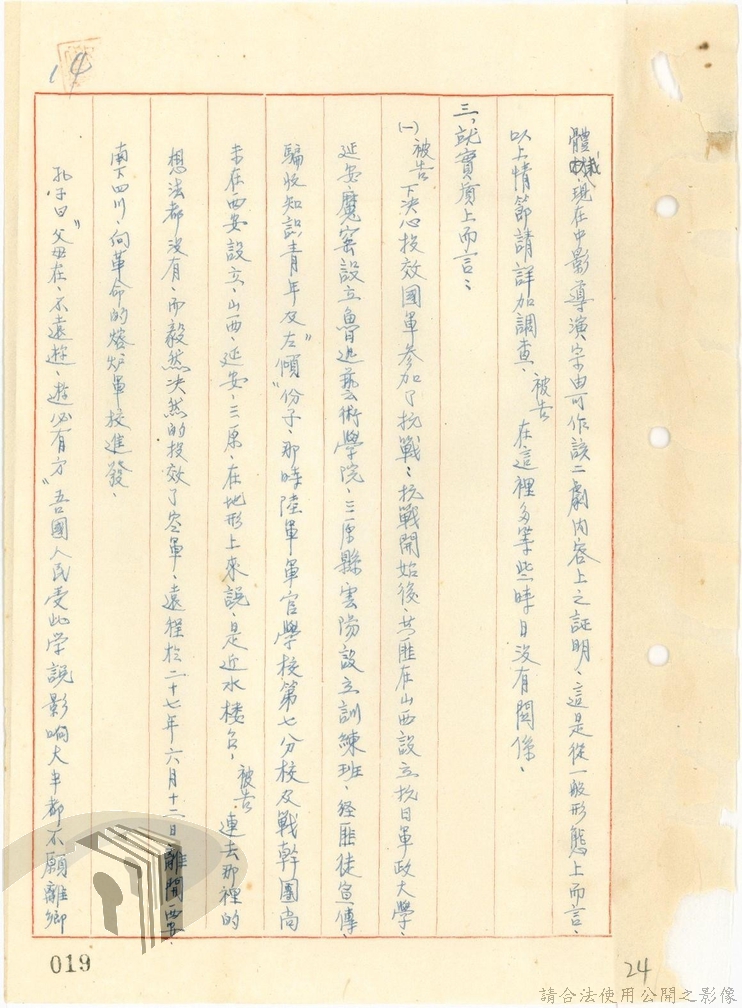 14
體裁、現在中影導演宗由可作該二劇內容上之証明、這是從一般形態上而言、
以上情節請詳加調查、被告在這裡多等些時日沒有關係、
三、就實質上而言：
(一)被告下決心投效國軍參加了抗戰：抗戰開始後、共匪在山西設立抗日軍政大學、
延安魔窟設立魯迅藝術學院、三原縣雲陽設立訓練班、經匪徒宣傳、
騙收知識青年及左"傾"份子、那時陸軍軍官學校第七分校及戰幹團尚
未在西安設立、山西、延安、三原、在地形上來說、是近水楼台、被告連去那裡的
想法都沒有、而毅然决然的投效了空軍、遠程於二十七年六月十二日離開西安、
南下四川、向革命的熔炉軍校進發、
孔子曰"父母在、不遠遊、遊必有方"吾國人民受此学説影响大半都不願離鄉
019
24
請合法使用公開之影像